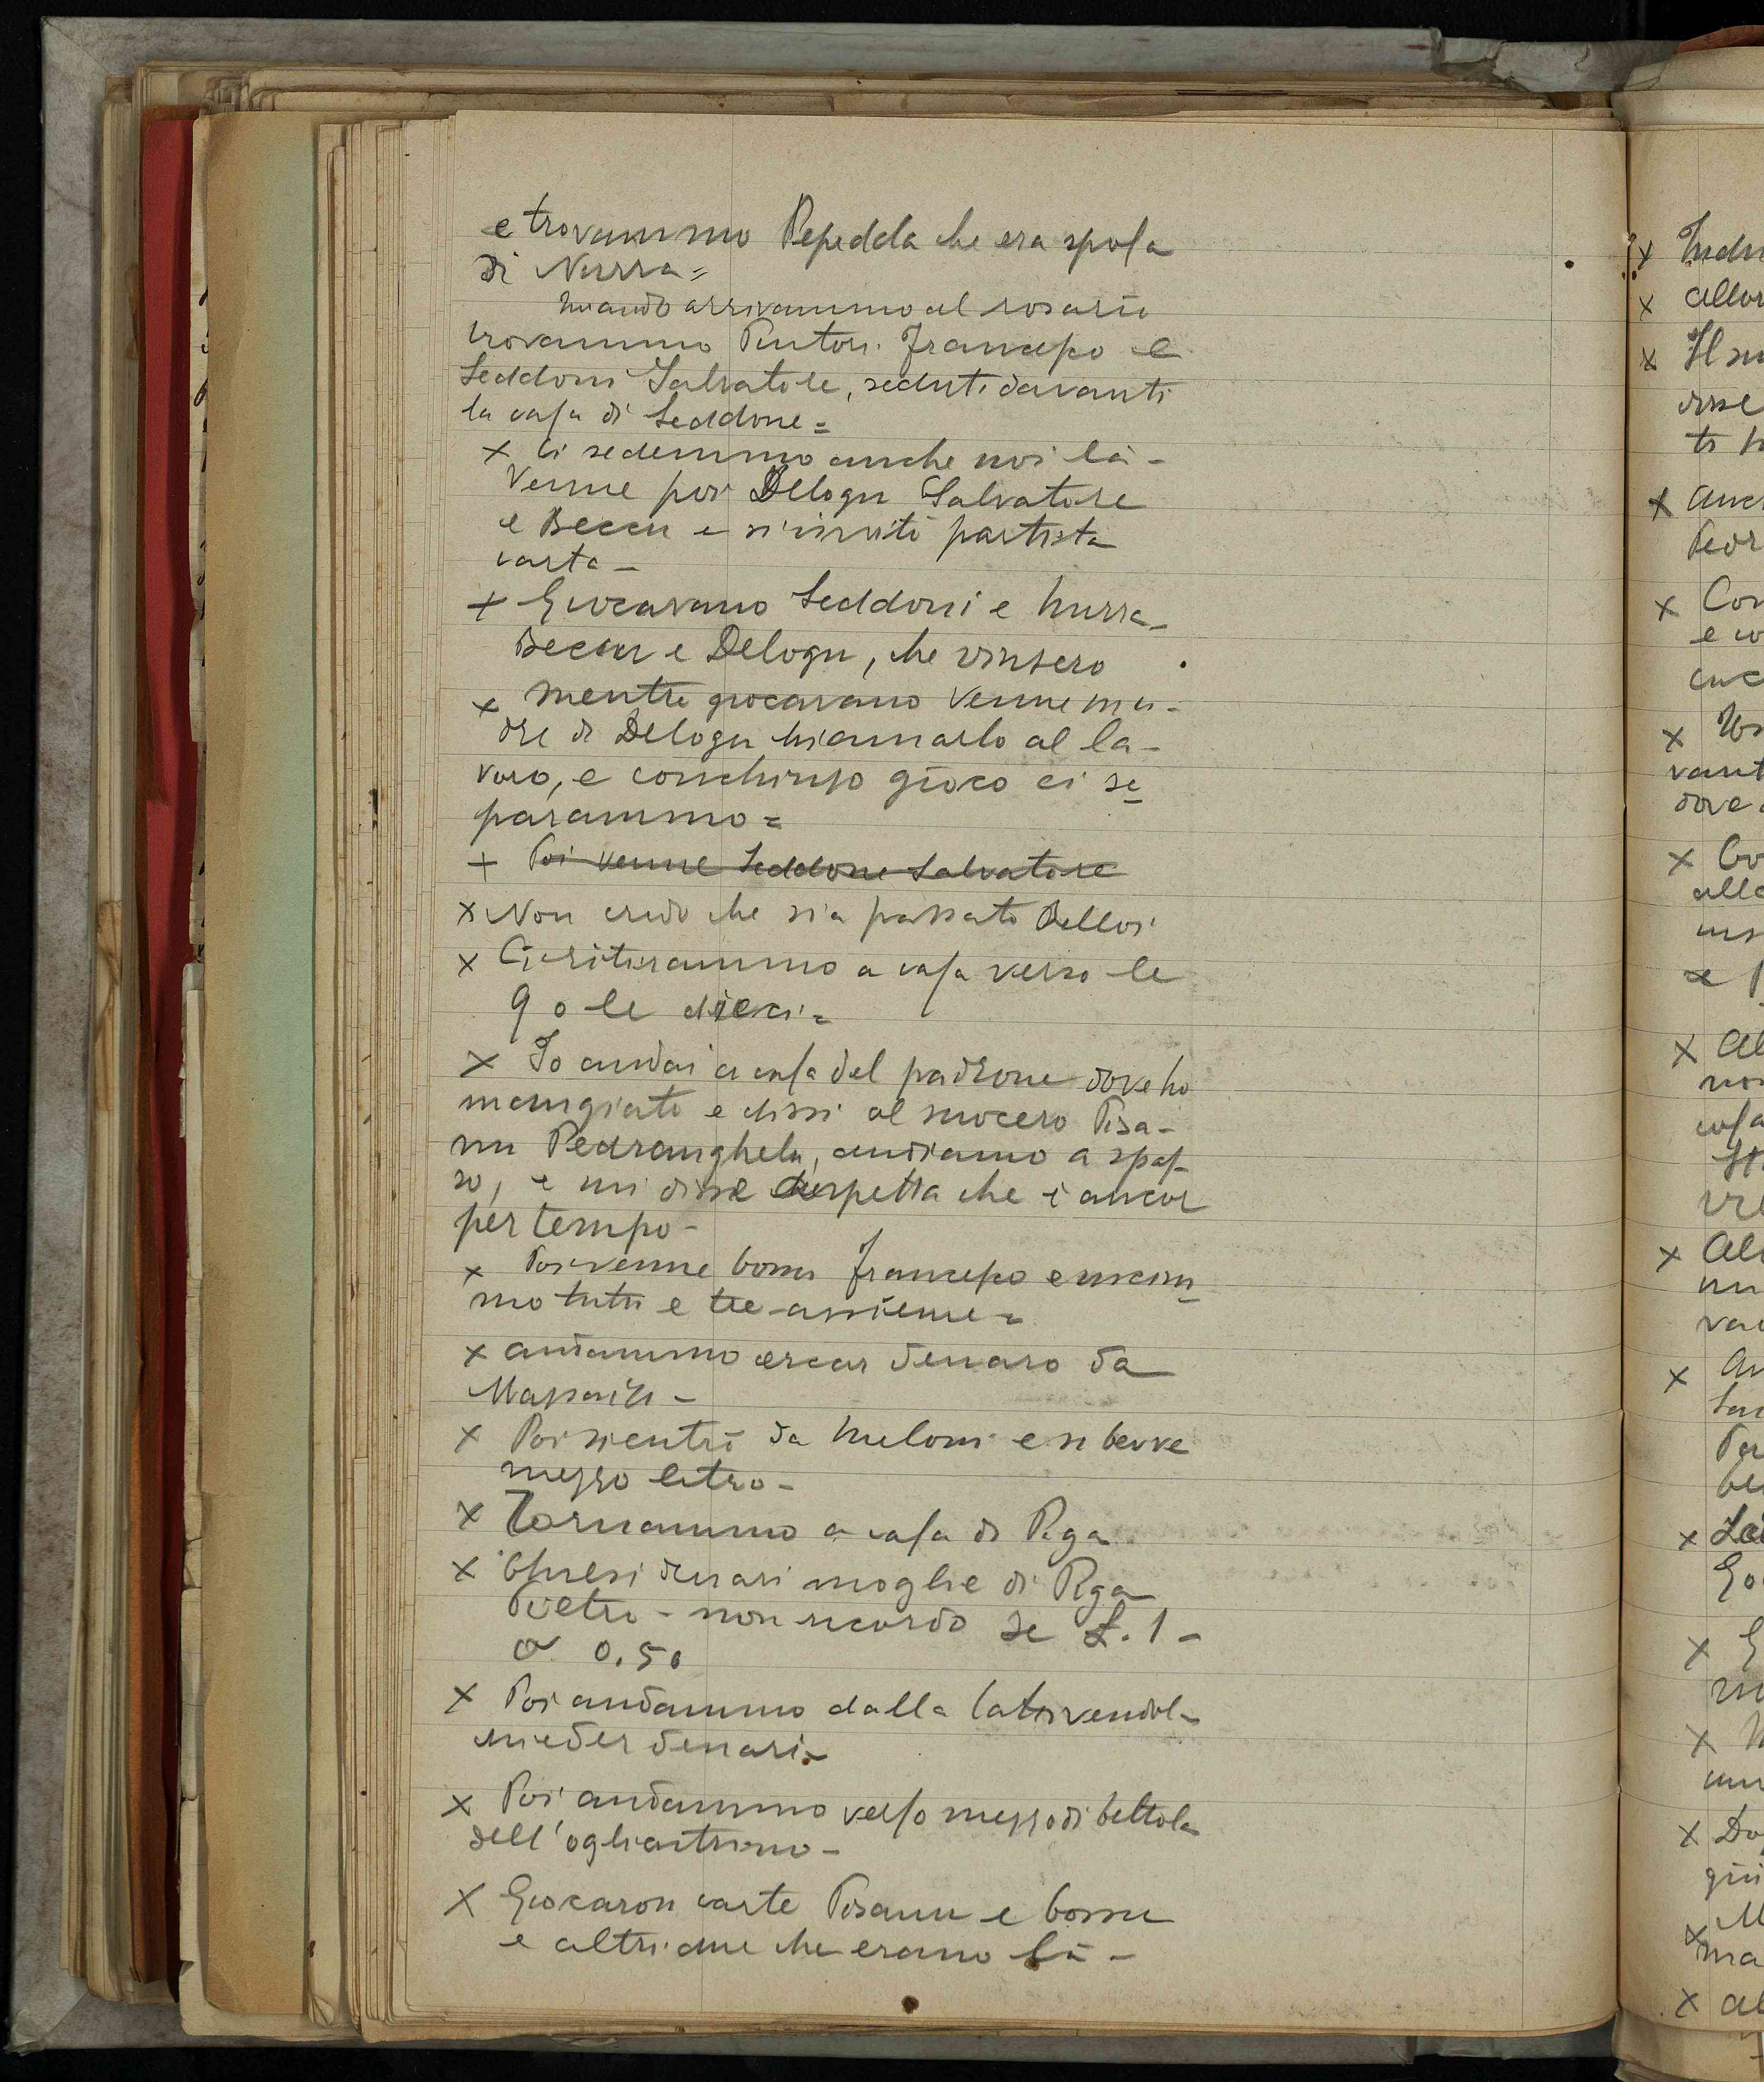 e trovammo Pepedda che era sposa
di Nurra =
Quando arrivammo al rosario
trovammo Pintori Francesco e
Seddoni Salvatore, seduti davanti
la casa di Seddone =
x Ci sedemmo anche noi là -
Venne poi Delogu Salvatore
e Beccu e si invitò partita
carta -
x Giocavano Seddoni e Nurra -
Beccu e Delogu, che vinsero
x mentre giocavano venne ma-
dre di Delogu chiamarlo al la-
voro, e conchiuso gioco ci se
parammo =
+ Poi venne Seddone Salvatore
x Non credo che sia passato Bellosi
x Ci ritirammo a casa verso le
9 o le dieci =
x Io andai a casa del padrone dove ho
mangiato e dissi al suocero Pisa-
nu Pedranghelu, andiamo a spas-
so, e mi disse aspetta che è ancor
per tempo -
x Poi venne bossu Francesco e uscim
mo tutti e tre assieme =
x andammo cercar denaro da
x Poi si entrò da Meloni e si bevve
mezzo litro -
x Tornammo a casa di Piga
x Chiesi denari moglie di Piga
Pietro - non ricordo se L. 1 -
o 0.50
x Poi andammo dalla lattivendola
chieder denari -
x Poi andammo verso mezzodì bettola
dell'ogliastrino -
x Giocaron carte Pisanu e bossu
e altri due che erano là -